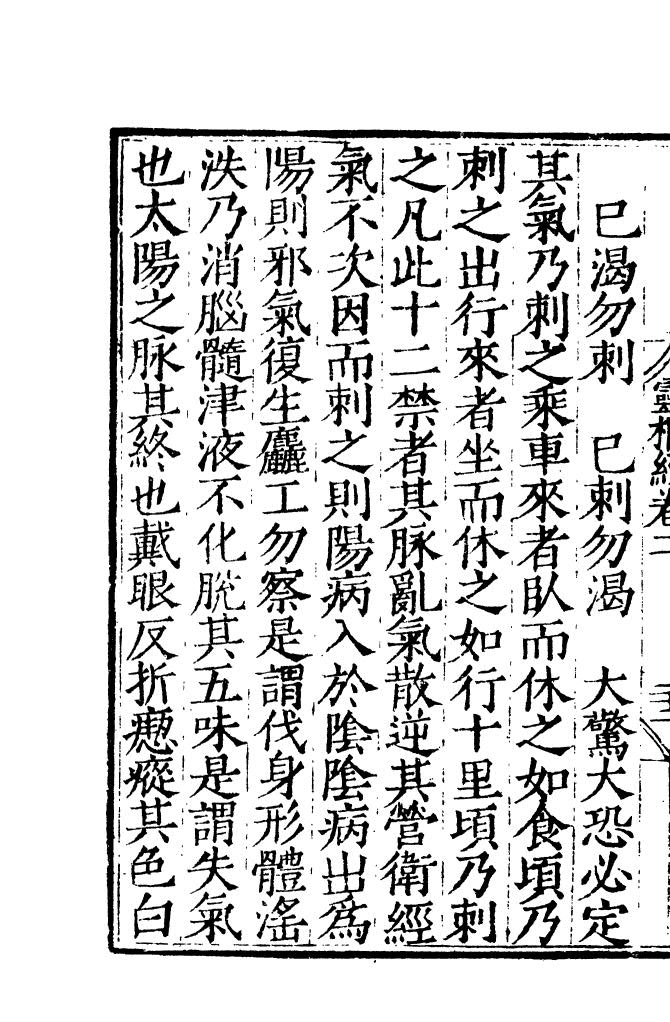 已渴勿刺　已刺勿渴　大驚大恐必定
其氣乃刺之乘車來者臥而休之如食頃乃
刺之出行來者坐而休之如行十里頃乃刺
之凡此十二禁者其脉亂氣散逆其營衛經
氣不次因而刺之則陽病入於陰陰病出爲
陽則邪氣復生麤工勿察是謂伐身形體滛
泆乃消腦髓津液不化脫其五味是謂失氣
也太陽之脉其終也戴眼反折瘛瘲其色白